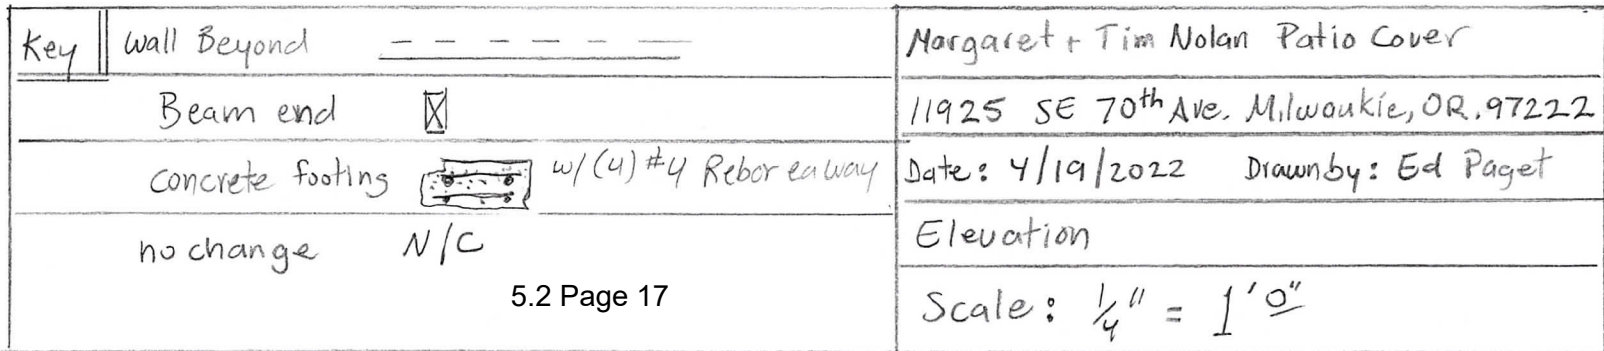 Key Wall Beyond
Beam end
Concrete footing w/ (4) #4 Rebar ea way
no change N/C
5.2 Page 17
Margaret + Tim Nolan Patio Cover
11925 SE 70th Ave. Milwaukie, OR. 97222
Date: 4/19/2022 Drawn by: Ed Paget
Elevation
Scale: 1/4" = 1'0"